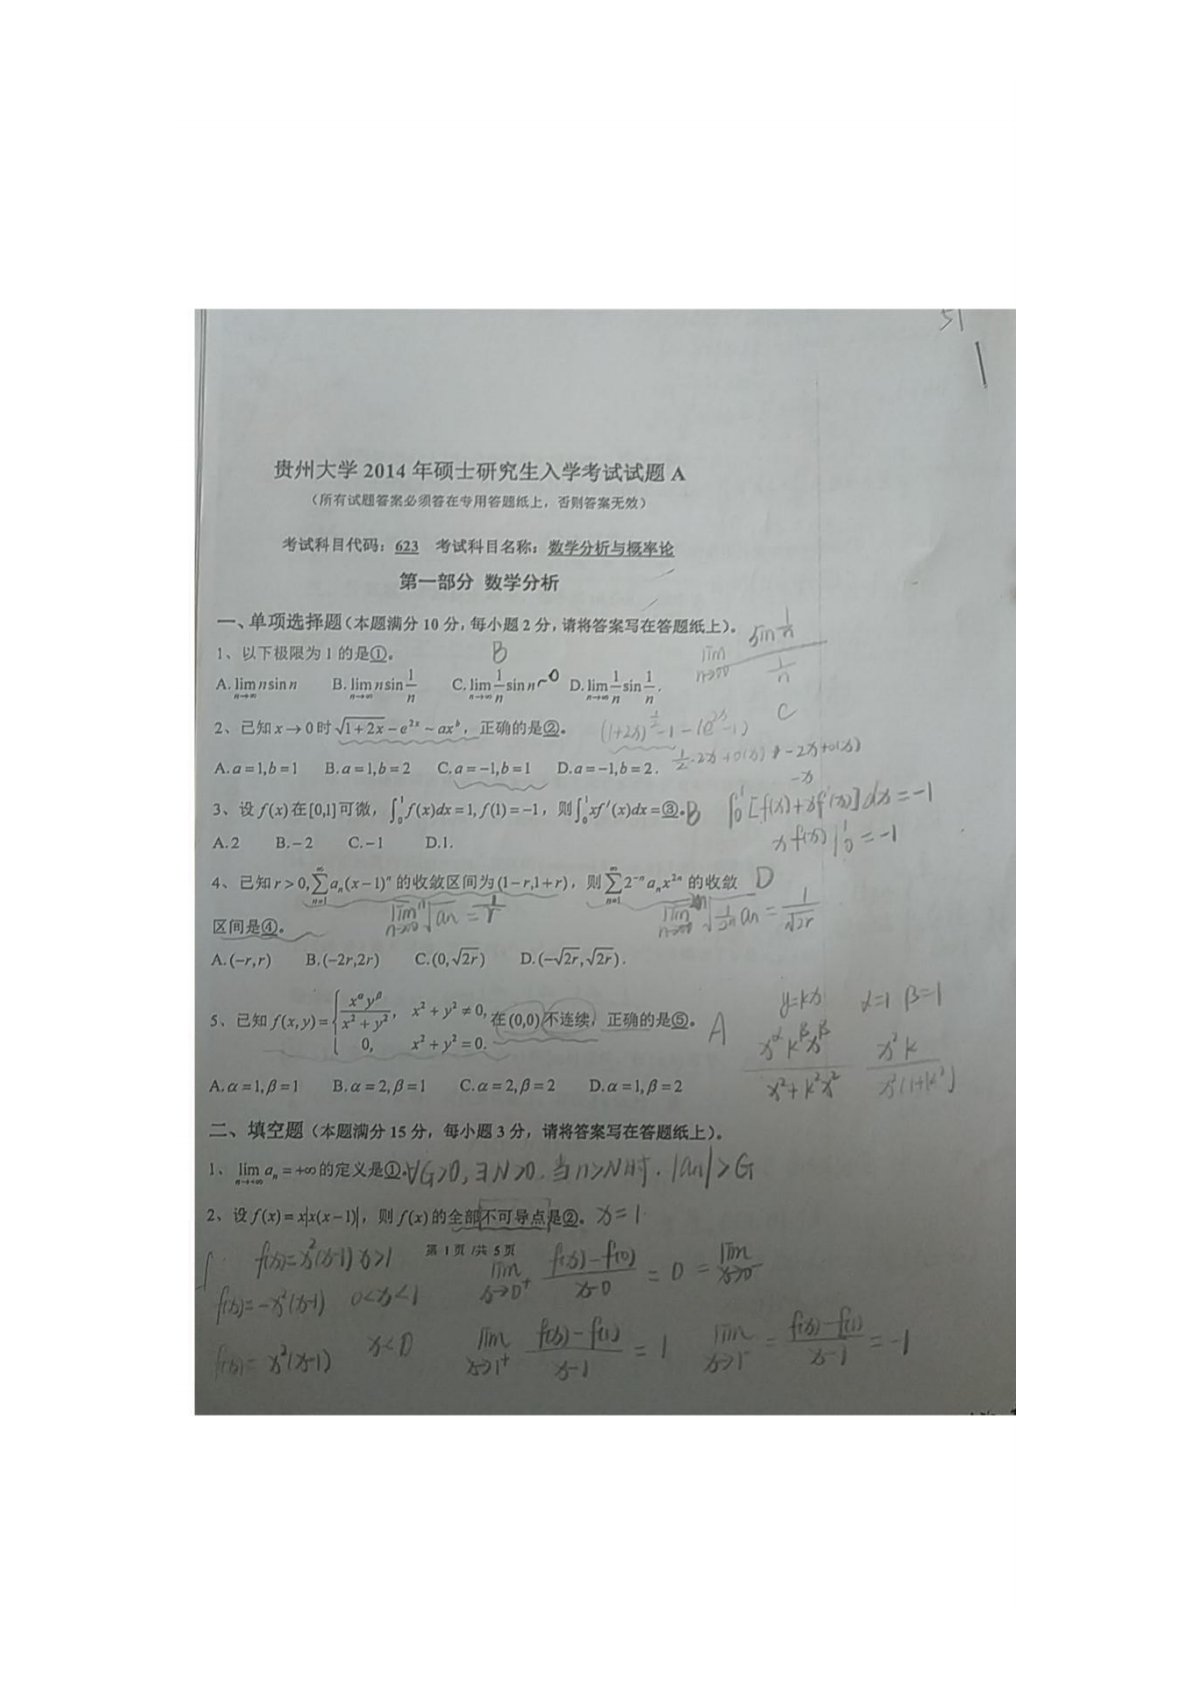 51
贵州大学 2014 年硕士研究生入学考试试题 A
（所有试题答案必须答在专用答题纸上，否则答案无效）
考试科目代码：623 考试科目名称：数学分析与概率论
第一部分 数学分析
一、单项选择题（本题满分 10 分，每小题 2 分，请将答案写在答题纸上）。
1、以下极限为 1 的是①。 B
lim n→∞ sin 1/n / 1/n
A. lim n→∞ n sin n B. lim n→∞ n sin 1/n C. lim n→∞ 1/n sin n ~0 D. lim n→∞ 1/n sin 1/n .
2、已知 x→0 时 √(1+2x) − e^{2x} ~ ax^b，正确的是②。 (1+2x)^{1/2} −1 − (e^{2x} −1) C
A. a=1,b=1 B. a=1,b=2 C. a=−1,b=1 D. a=−1,b=2. 1/2·2x+o(x) − 2x+o(x)
−x
3、设 f(x) 在 [0,1] 可微，∫₀¹ f(x)dx=1, f(1)=−1，则 ∫₀¹ xf′(x)dx=③。 B ∫₀¹ [f(x)+xf′(x)]dx = −1
A. 2 B. −2 C. −1 D. 1. xf(x)|₀¹ = −1
4、已知 r>0, ∑_{n=1}^{∞} aₙ(x−1)ⁿ 的收敛区间为 (1−r,1+r)，则 ∑_{n=1}^{∞} 2^{−n} aₙ x^{2n} 的收敛 D
区间是④。 lim n→∞ ⁿ√aₙ = 1/r lim n→∞ √(1/2ⁿ aₙ) = 1/√2r
A. (−r,r) B. (−2r,2r) C. (0,√2r) D. (−√2r,√2r).
y=kx α=1 β=1
5、已知 f(x,y)= { x^α y^β / (x²+y²), x²+y²≠0, 0, x²+y²=0. 在 (0,0) 不连续，正确的是⑤。 A
x^α k^β x^β / x²+k²x² x²k / x²(1+k²)
A. α=1,β=1 B. α=2,β=1 C. α=2,β=2 D. α=1,β=2
二、填空题（本题满分 15 分，每小题 3 分，请将答案写在答题纸上）。
1、lim n→+∞ aₙ=+∞ 的定义是①。∀G>0, ∃N>0. 当n>N时. |an|>G
2、设 f(x)=x|x(x−1)|，则 f(x) 的全部不可导点是②。 x=1
第 1 页 /共 5 页
f(x)=x²(x-1) x>1 lim x→0⁺ f(x)−f(0) / x−0 = 0 = lim x→0⁻
f(x)=−x²(x-1) 0<x<1
f(x)= x²(x-1) x<0 lim x→1⁺ f(x)−f(1) / x−1 = 1 lim x→1⁻ = f(x)−f(1) / x−1 = −1